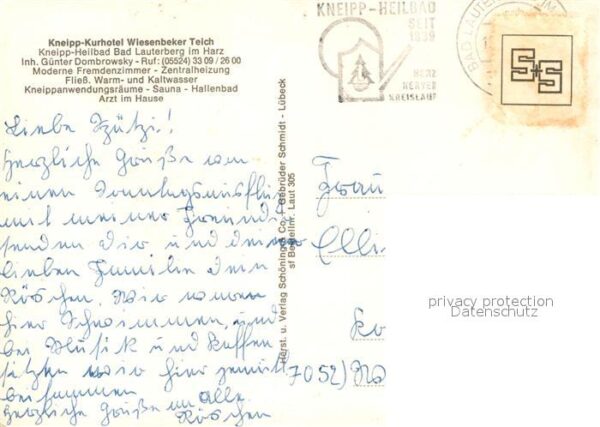 Kneipp-Kurhotel Wiesenbeker Teich
Kneipp-Heilbad Bad Lauterberg im Harz
Inh. Günter Dombrowsky - Ruf: (05524) 33 09 / 26 00
Moderne Fremdenzimmer - Zentralheizung
Fließ. Warm- und Kaltwasser
Kneippanwendungsräume - Sauna - Hallenbad
Arzt im Hause
KNEIPP-HEILBAD
SEIT
1839
HERZ
NERVEN
KREISLAUF
BAD LAUTERB
S+S
Liebe
Herzliche Grüße von
einem Sonntagsausflug
mit meiner Freundin
senden dir und deiner
lieben Familie dein
Röschen. Wir waren
hier Schwimmen, und
bei Musik und Kaffee
sitzen wir hier gemütl.
beisammen
Herzliche Grüße an alle
Röschen
Herst. u. Verlag Schöning & Co. + Gebrüder Schmidt - Lübeck
sf Bestellnr. Laut 305
Frau
Elli
7052)
privacy protection
Datenschutz